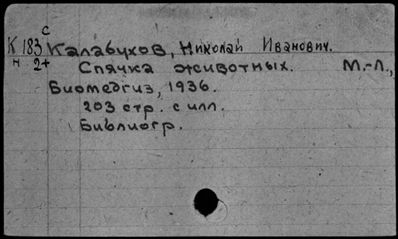 с
К 183 Калабухов, Николай Иванович.
н 2+ Спячка животных. М.-Л.,
Биомедгиз, 1936.
203 стр. с илл.
Библиогр.